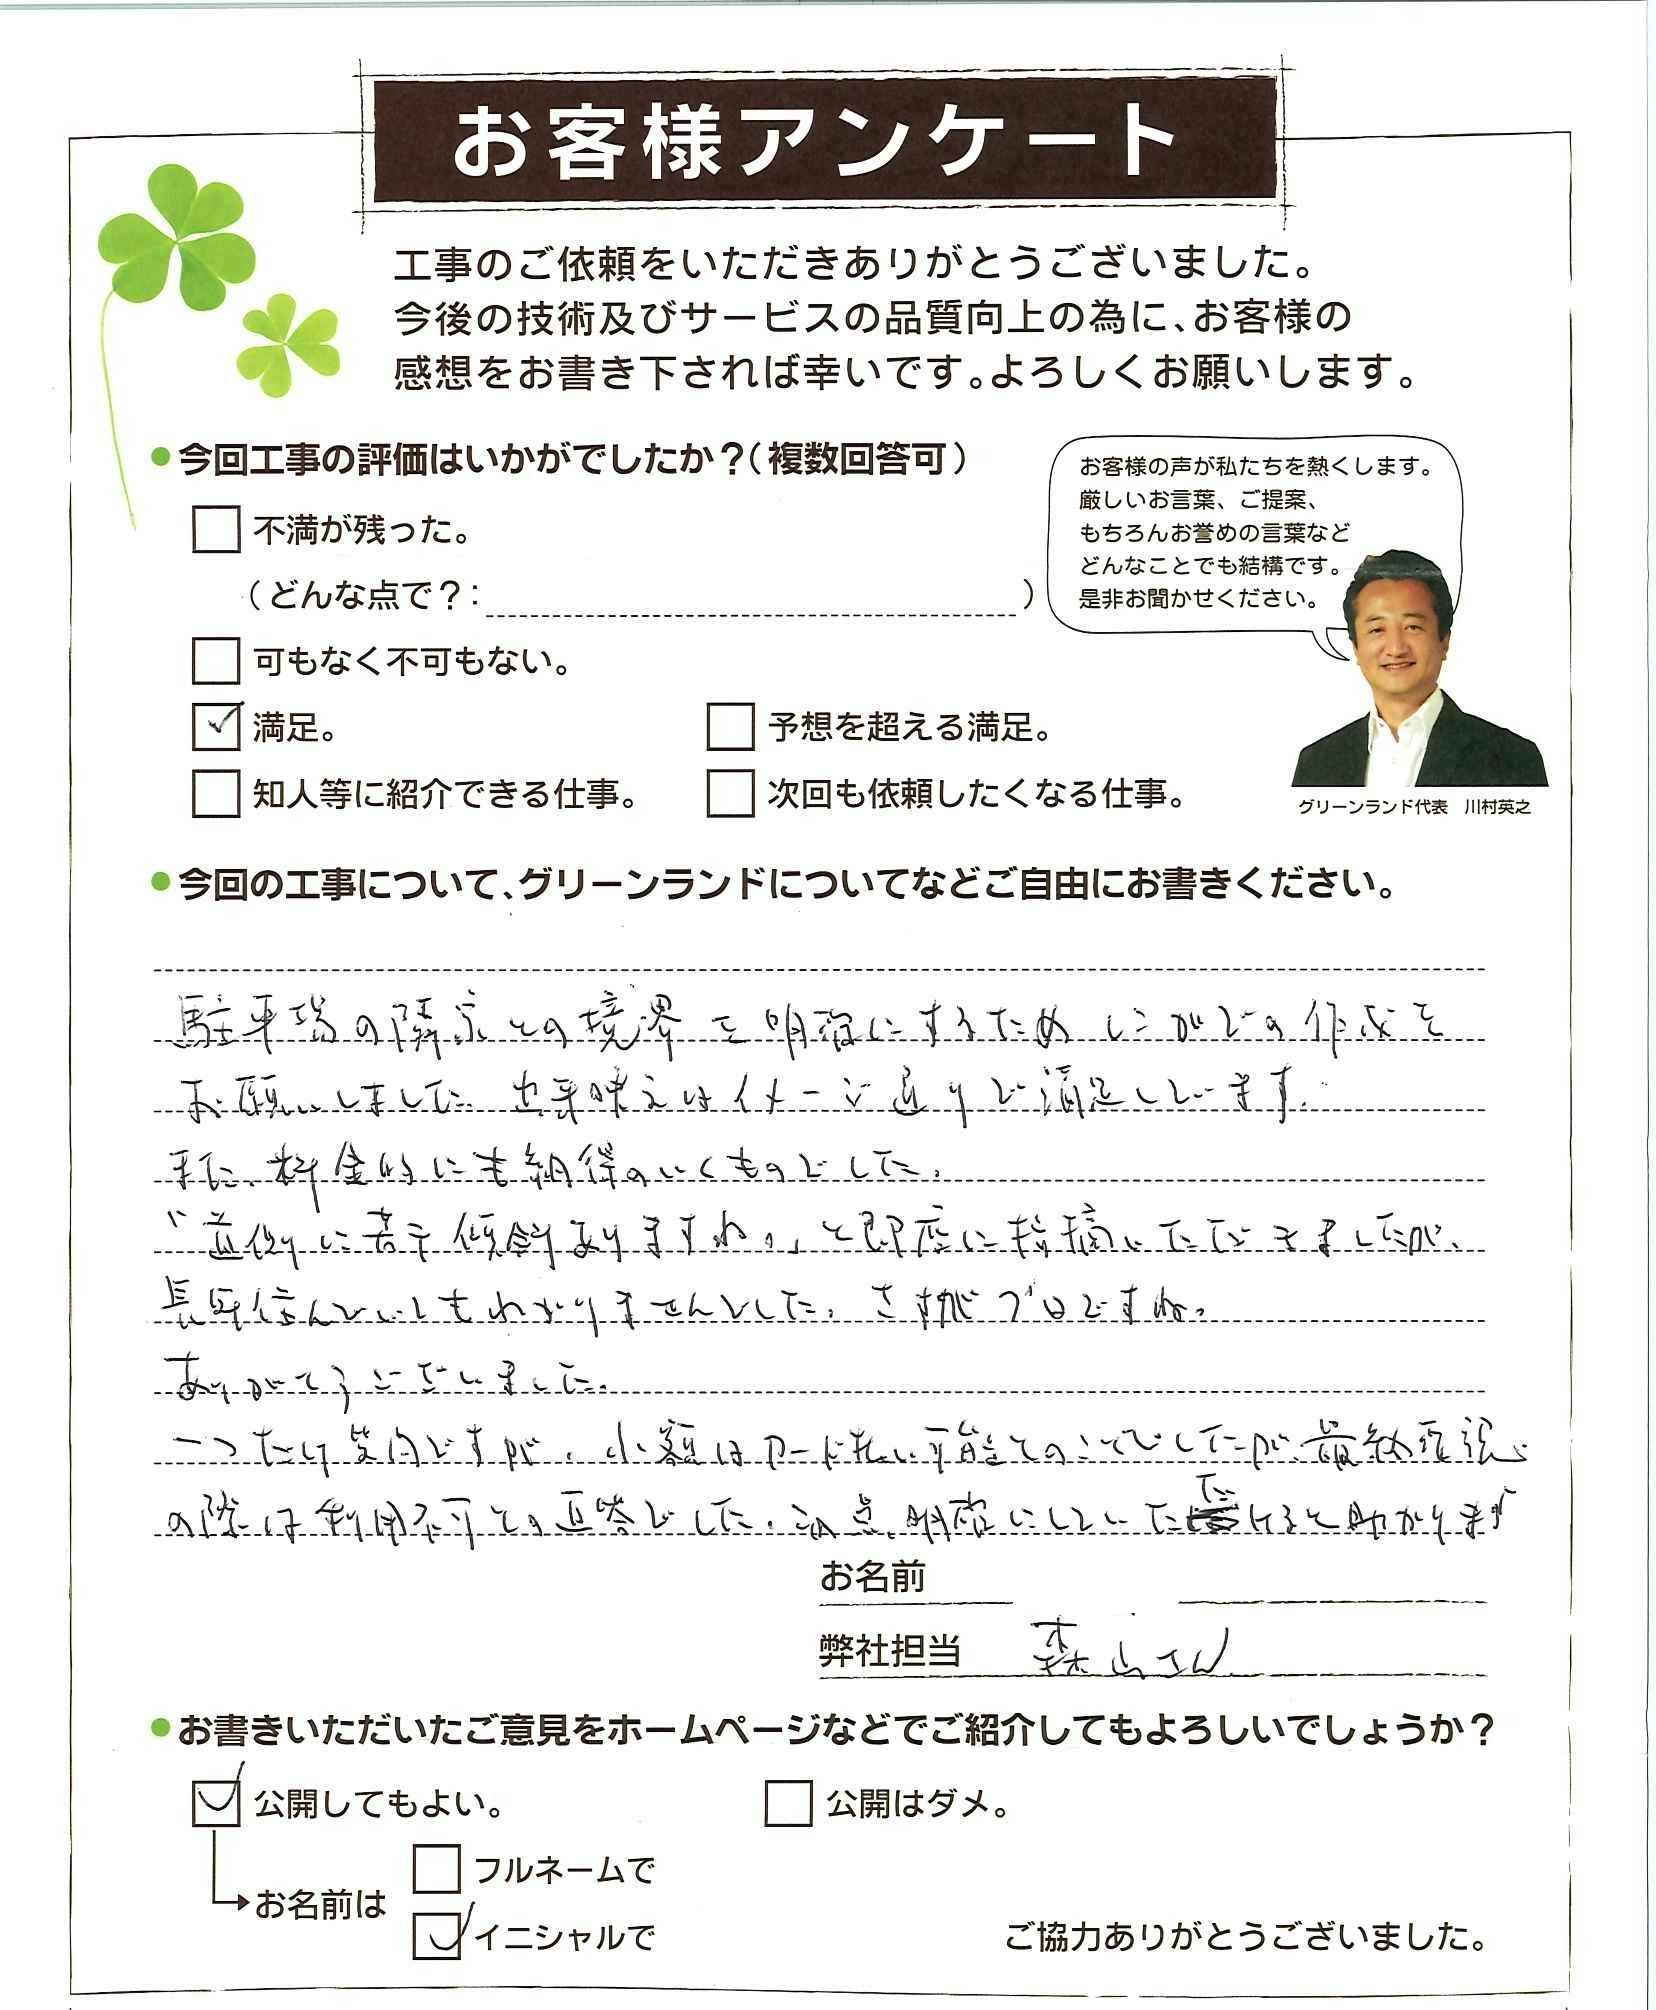 お客様アンケート
工事のご依頼をいただきありがとうございました。
今後の技術及びサービスの品質向上の為に、お客様の
感想をお書き下されば幸いです。よろしくお願いします。
●今回工事の評価はいかがでしたか？（複数回答可）
お客様の声が私たちを熱くします。
厳しいお言葉、ご提案、
もちろんお誉めの言葉など
どんなことでも結構です。
是非お聞かせください。
不満が残った。
（どんな点で？：　）
可もなく不可もない。
満足。 予想を超える満足。
知人等に紹介できる仕事。 次回も依頼したくなる仕事。
グリーンランド代表　川村英之
●今回の工事について、グリーンランドについてなどご自由にお書きください。
駐車場の隣家との境界を明確にするため レンガでの作成を
お願いしました。出来映えはイメージ通りで満足しています。
また、料金的にも納得のいくものでした。
"道側に若干傾斜ありますね。」と即座に指摘いただきましたが、
長年住んでいてもわかりませんでした。さすがプロですね。
ありがとうございました。
一つだけ質問ですが、小額はカード払い可能とのことでしたが、最終確認
の際は利用不可との返答でした。この点、明確にしていただけると助かります
お名前
弊社担当 森山さん
●お書きいただいたご意見をホームページなどでご紹介してもよろしいでしょうか？
公開してもよい。 公開はダメ。
フルネームで
お名前は
イニシャルで ご協力ありがとうございました。